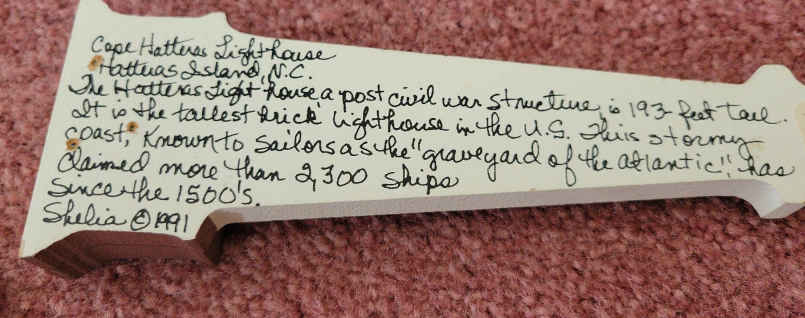 Cape Hatteras Lighthouse
Hatteras Island, N.C.
The Hatteras Light house, a post civil war structure, is 193 feet tall.
It is the tallest brick lighthouse in the U.S. This stormy
coast, Known to sailors as the "graveyard of the atlantic", has
claimed more than 2,300 ships
since the 1500's.
Shelia © 1991